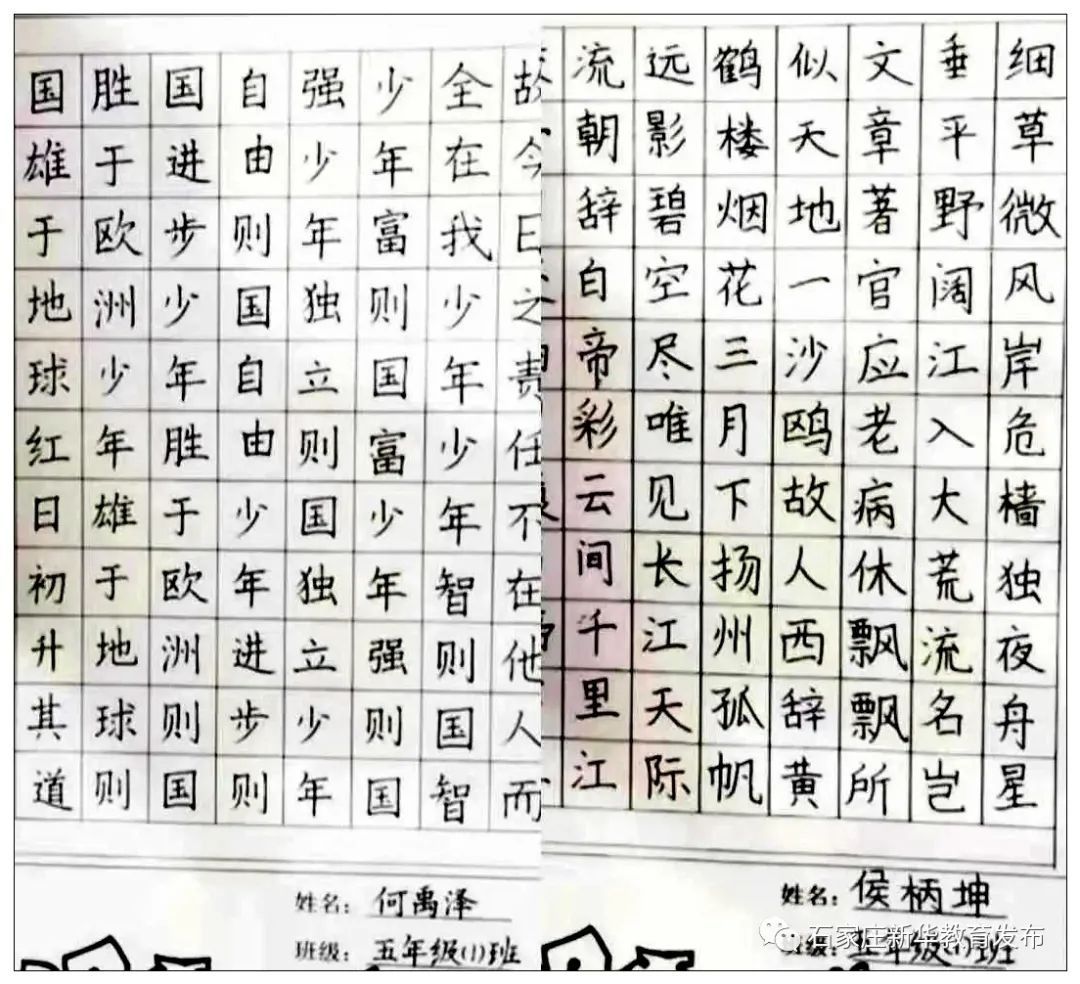 故今日之责任不在他人而
全在我少年少年智则国智
少年富则国富少年强则国
强少年独立则国独立少年
自由则国自由少年进步则
国进步少年胜于欧洲则国
胜于欧洲少年雄于地球则
国雄于地球红日初升其道
姓名：何禹泽
班级：五年级(1)班
细草微风岸危樯独夜舟星
垂平野阔江入大荒流名岂
文章著官应老病休飘飘所
似天地一沙鸥故人西辞黄
鹤楼烟花三月下扬州孤帆
远影碧空尽唯见长江天际
流朝辞白帝彩云间千里江
姓名：侯柄坤
班级：五年级(1)班
石家庄新华教育发布